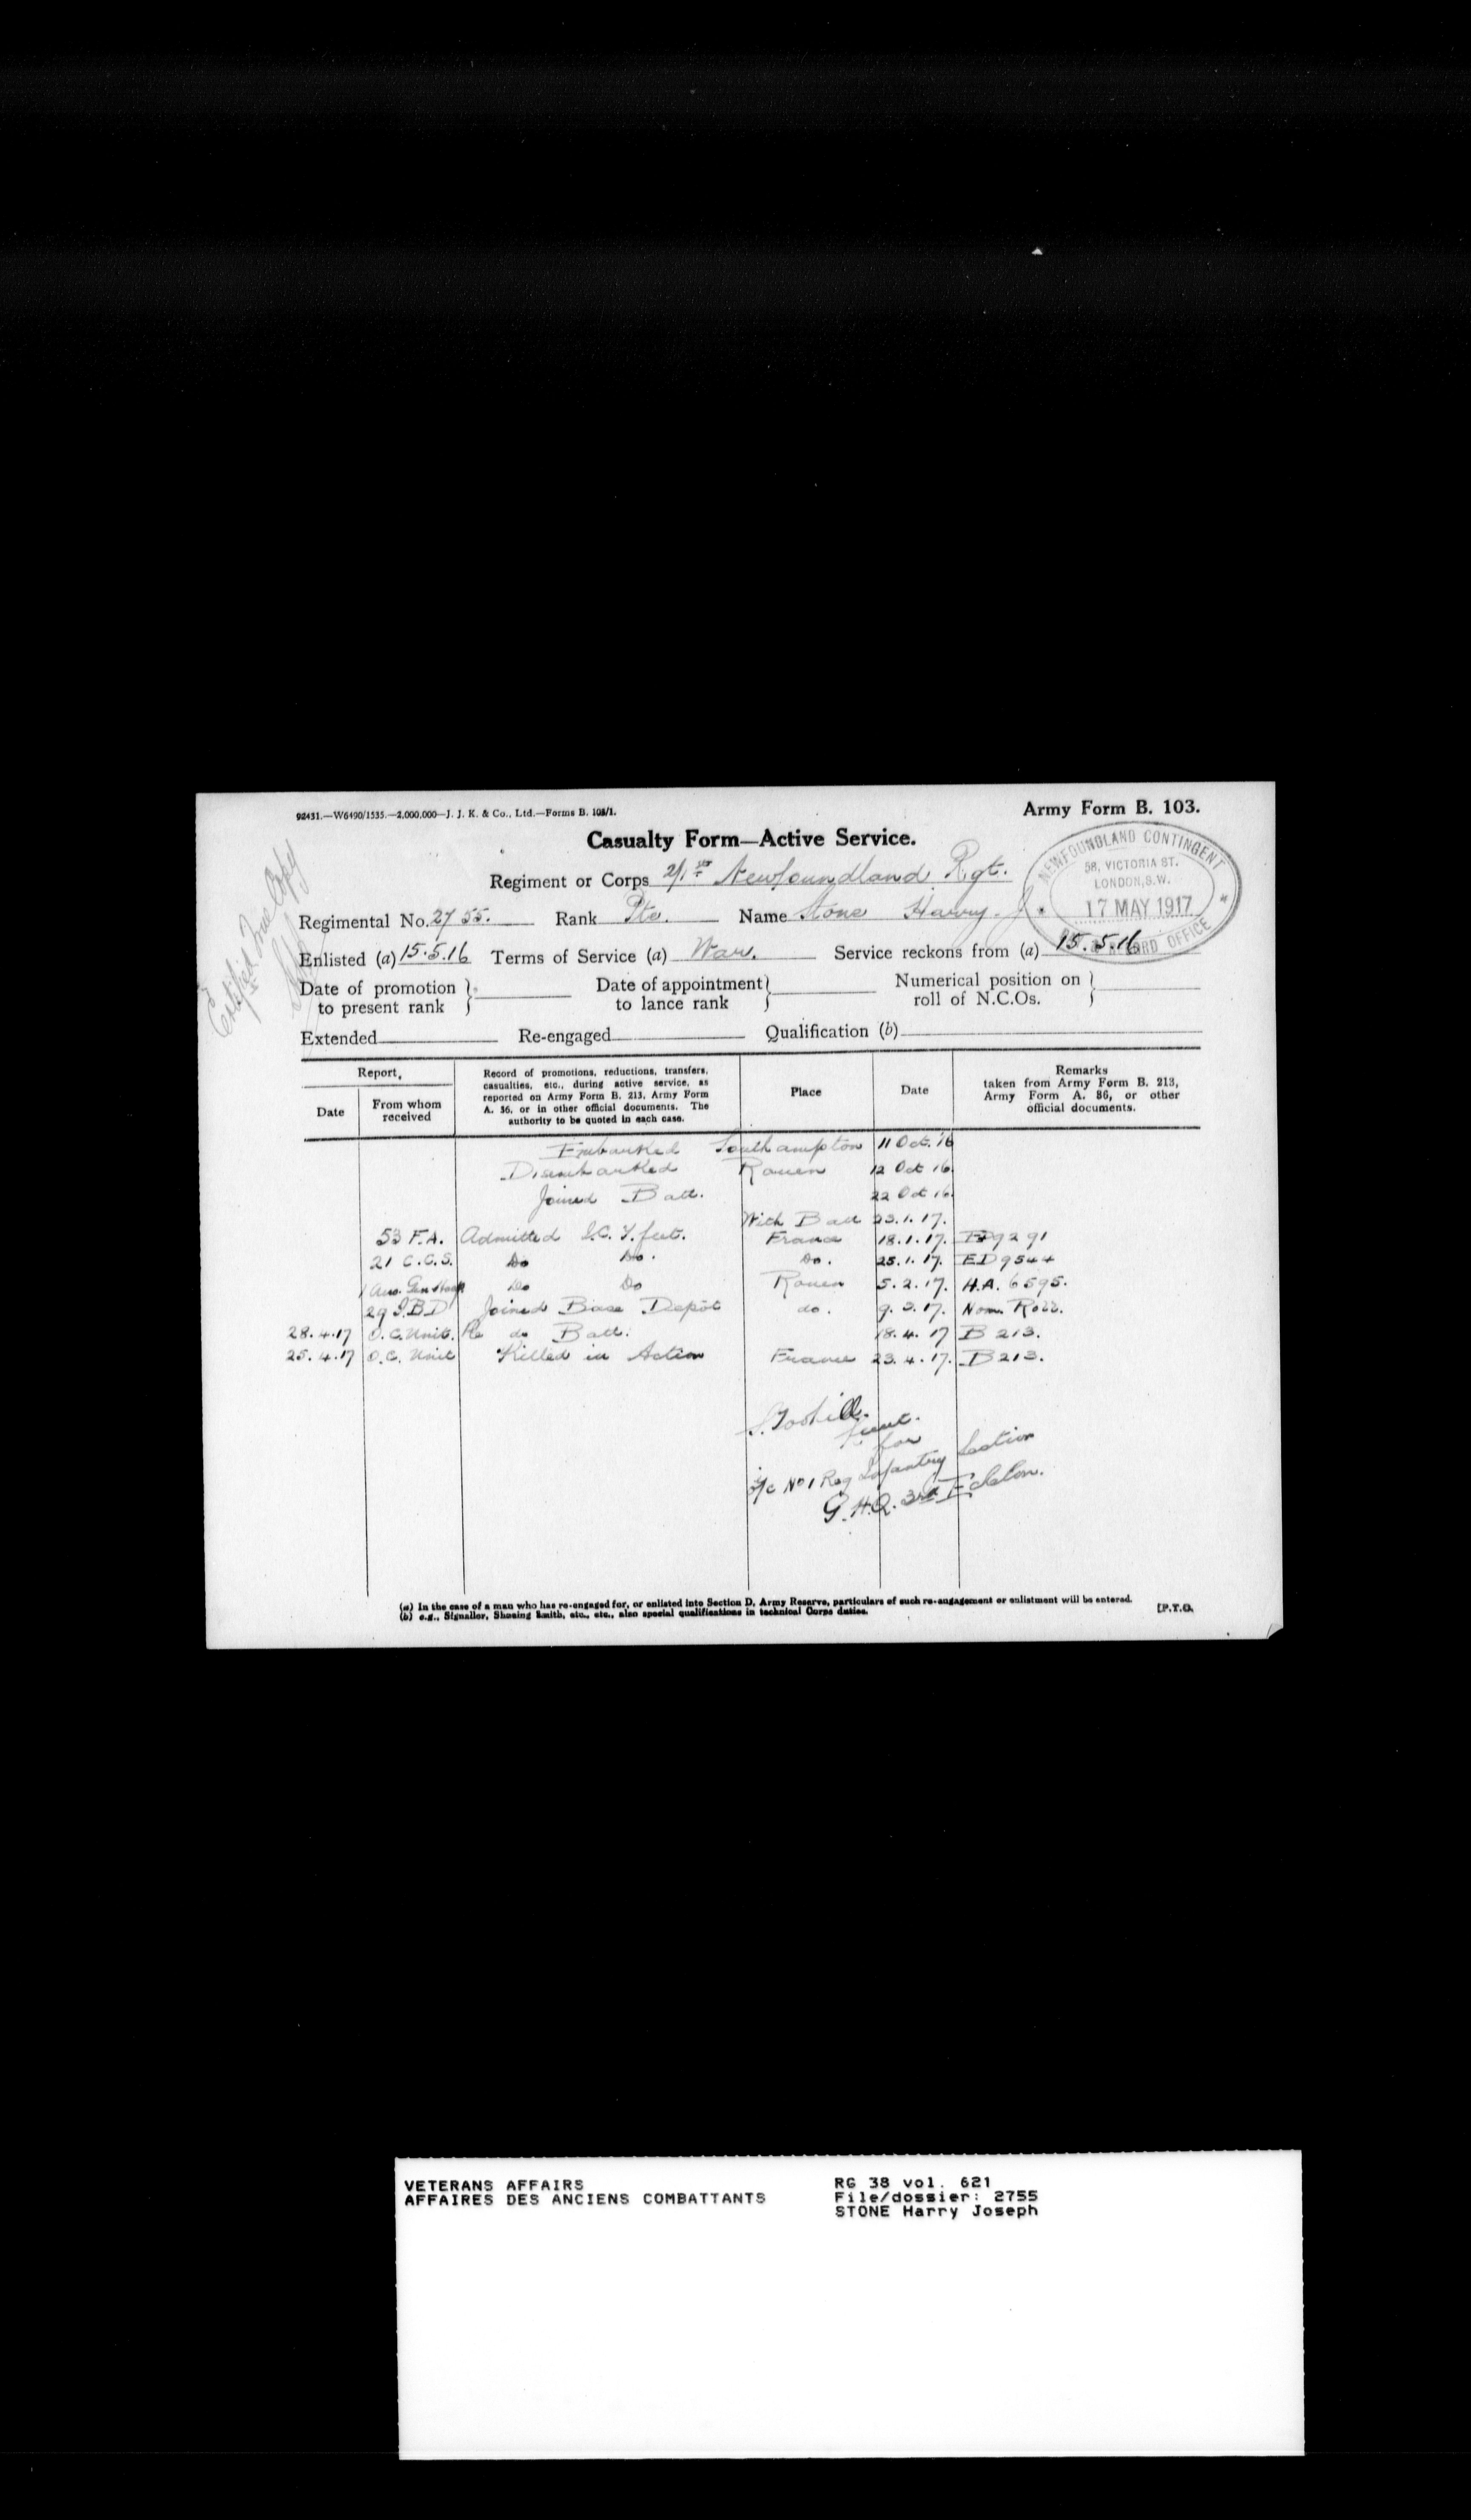 92431.—W6490/1535.—2,000,000—J. J. K. & Co., Ltd.—Forms B. 103/1.
Army Form B. 103.
Casualty Form—Active Service.
Regiment or Corps 2/1st Newfoundland Rgt.
Regimental No. 2755. Rank Pte. Name Stone Harry. J.
NEWFOUNDLAND CONTINGENT
58, VICTORIA ST.
LONDON, S.W.
17 MAY 1917
RECORD OFFICE
Certified True Copy
Enlisted (a) 15.5.16 Terms of Service (a) War. Service reckons from (a) 15.5.16
Date of promotion to present rank
Date of appointment to lance rank
Numerical position on roll of N.C.Os.
Extended Re-engaged Qualification (b)
Report, Date From whom received
Record of promotions, reductions, transfers, casualties, etc., during active service, as reported on Army Form B. 213, Army Form A. 36, or in other official documents. The authority to be quoted in each case.
Place
Date
Remarks taken from Army Form B. 213, Army Form A. 36, or other official documents.
Embarked Southampton 11 Oct. 16
Disembarked Rouen 12 Oct 16
Joined Batt. 22 Oct 16
With Batt 23.1.17.
53 F.A. Admitted I.C.T. feet. France 18.1.17. ED9291
21 C.C.S. Do Do. Do. 25.1.17. ED9544
1 Aus. Gen Hosp Do Do Rouen 5.2.17. H.A. 6595.
29 I.B.D Joined Base Depôt do. 9.3.17. Nom. Roll.
28.4.17 O.C. Unit. Re do Batt. 18.4.17 B 213.
25.4.17 O.C. Unit Killed in Action France 23.4.17. B213.
Lieut.
for
o/c No 1 Reg Infantry Section
G.H.Q. 3rd Echelon.
(a) In the case of a man who has re-engaged for, or enlisted into Section D, Army Reserve, particulars of such re-engagement or enlistment will be entered.
(b) e.g., Signaller, Shoeing Smith, etc., etc., also special qualifications in technical Corps duties.
[P.T.O.
VETERANS AFFAIRS
AFFAIRES DES ANCIENS COMBATTANTS
RG 38 vol. 621
File/dossier: 2755
STONE Harry Joseph